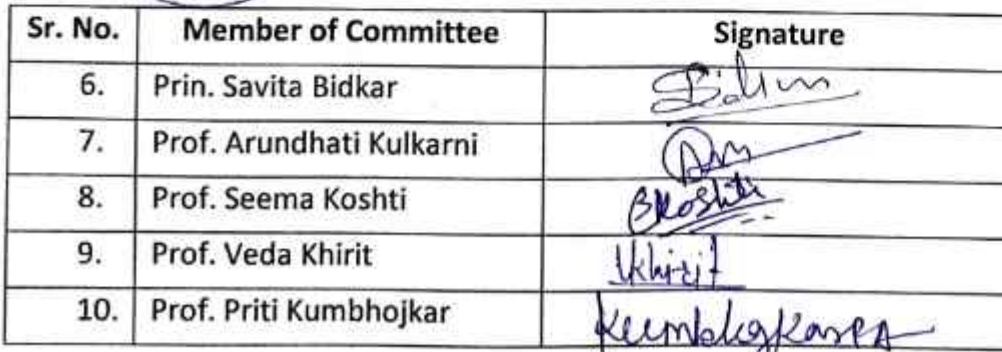 Sr. No. Member of Committee Signature
6. Prin. Savita Bidkar
7. Prof. Arundhati Kulkarni
8. Prof. Seema Koshti SKoshti
9. Prof. Veda Khirit VKhirit
10. Prof. Priti Kumbhojkar